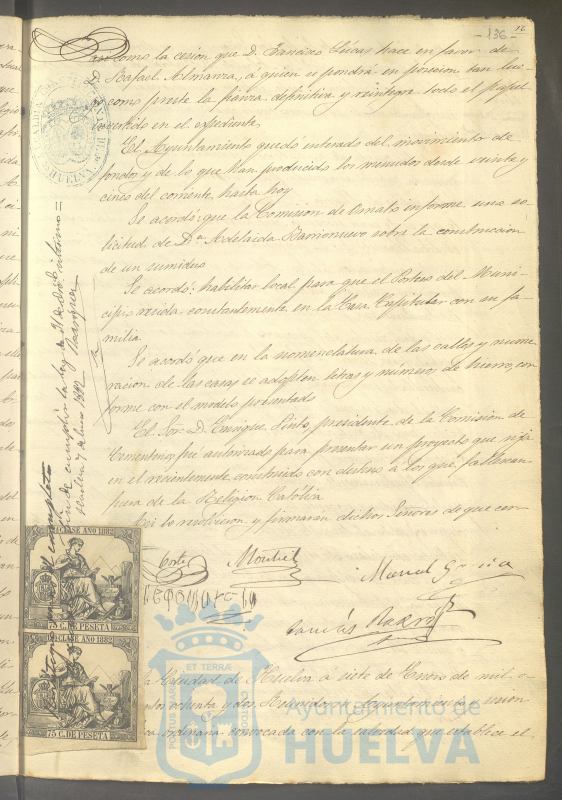 - 136 -
así como la cesion que D. Francisco Vicas hace en favor de
D. Rafael Almansa, á quien se pondrá en posesion tan lue-
como preste la fianza definitiva y reintegre todo el papel
invertido en el expediente.
El Ayuntamiento quedó enterado del movimiento de
fondos y de lo que han producido los menudos desde veinte y
cinco del corriente hasta hoy
Se acordó: que la Comision de Ornato informe una so-
licitud de Dª Adelaida Barrionuevo sobre la construccion
de un sumidero
Se acordó: habilitar local para que el Portero del Muni-
cipio resida constantemente en la Casa Capitular con su fa-
milia
Se acordó que en la nomenclatura de las calles y nume-
racion de las casas se adopten letras y números de hierro, con-
forme con el modelo presentado
El Sor. D. Enrique Pinto, presidente de la Comision de
Cementerio, fué autorizado para presentar un proyecto que rija
en el recientemente construido con destino á los que fallezcan
fuera de la Religion Católica
Así lo resolvieron y firmarán dichos Señores de que cer-
Corte
Montiel
Manuel García
En la Ciudad de Huelva á siete de Enero de mil o-
chocientos ochenta y dos. Reunidos el Ayuntamiento en sesion
ordinaria convocada con la calidad que establece el
HUELVA
Huelva 7 de Enero 1882
CLASE AÑO 1882
75 C. DE PESETA
CLASE AÑO 1882
75 C. DE PESETA
PORTUS MARIS ET TERRÆ CUSTODIA
Ayuntamiento de
HUELVA